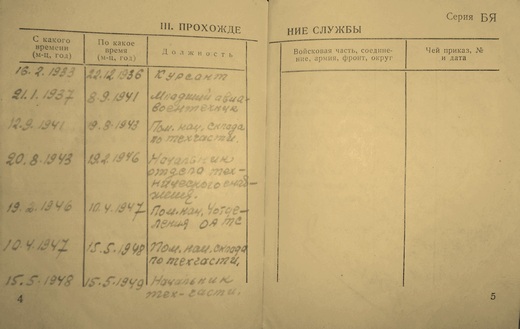 Серия БЯ
III. ПРОХОЖДЕ НИЕ СЛУЖБЫ
С какого времени (м-ц, год)
По какое время (м-ц, год)
Должность
Войсковая часть, соединение, армия, фронт, округ
Чей приказ, № и дата
16.2.1933 22.12.1936 Курсант
21.1.1937 8.9.1941 Младший авиа-
воентехник
12.9.1941 19.8.1943 Пом. нач. склада
по техчасти.
20.8.1943 19.2.1946 Начальник
отдела тех-
нического снаб-
жения.
19.2.1946 10.4.1947 Пом. нач. 
ления ОАТС
10.4.1947 15.5.1948 Пом. нач. склада
по техчасти.
15.5.1948 15.5.1949 Начальник
тех-части.
4
5